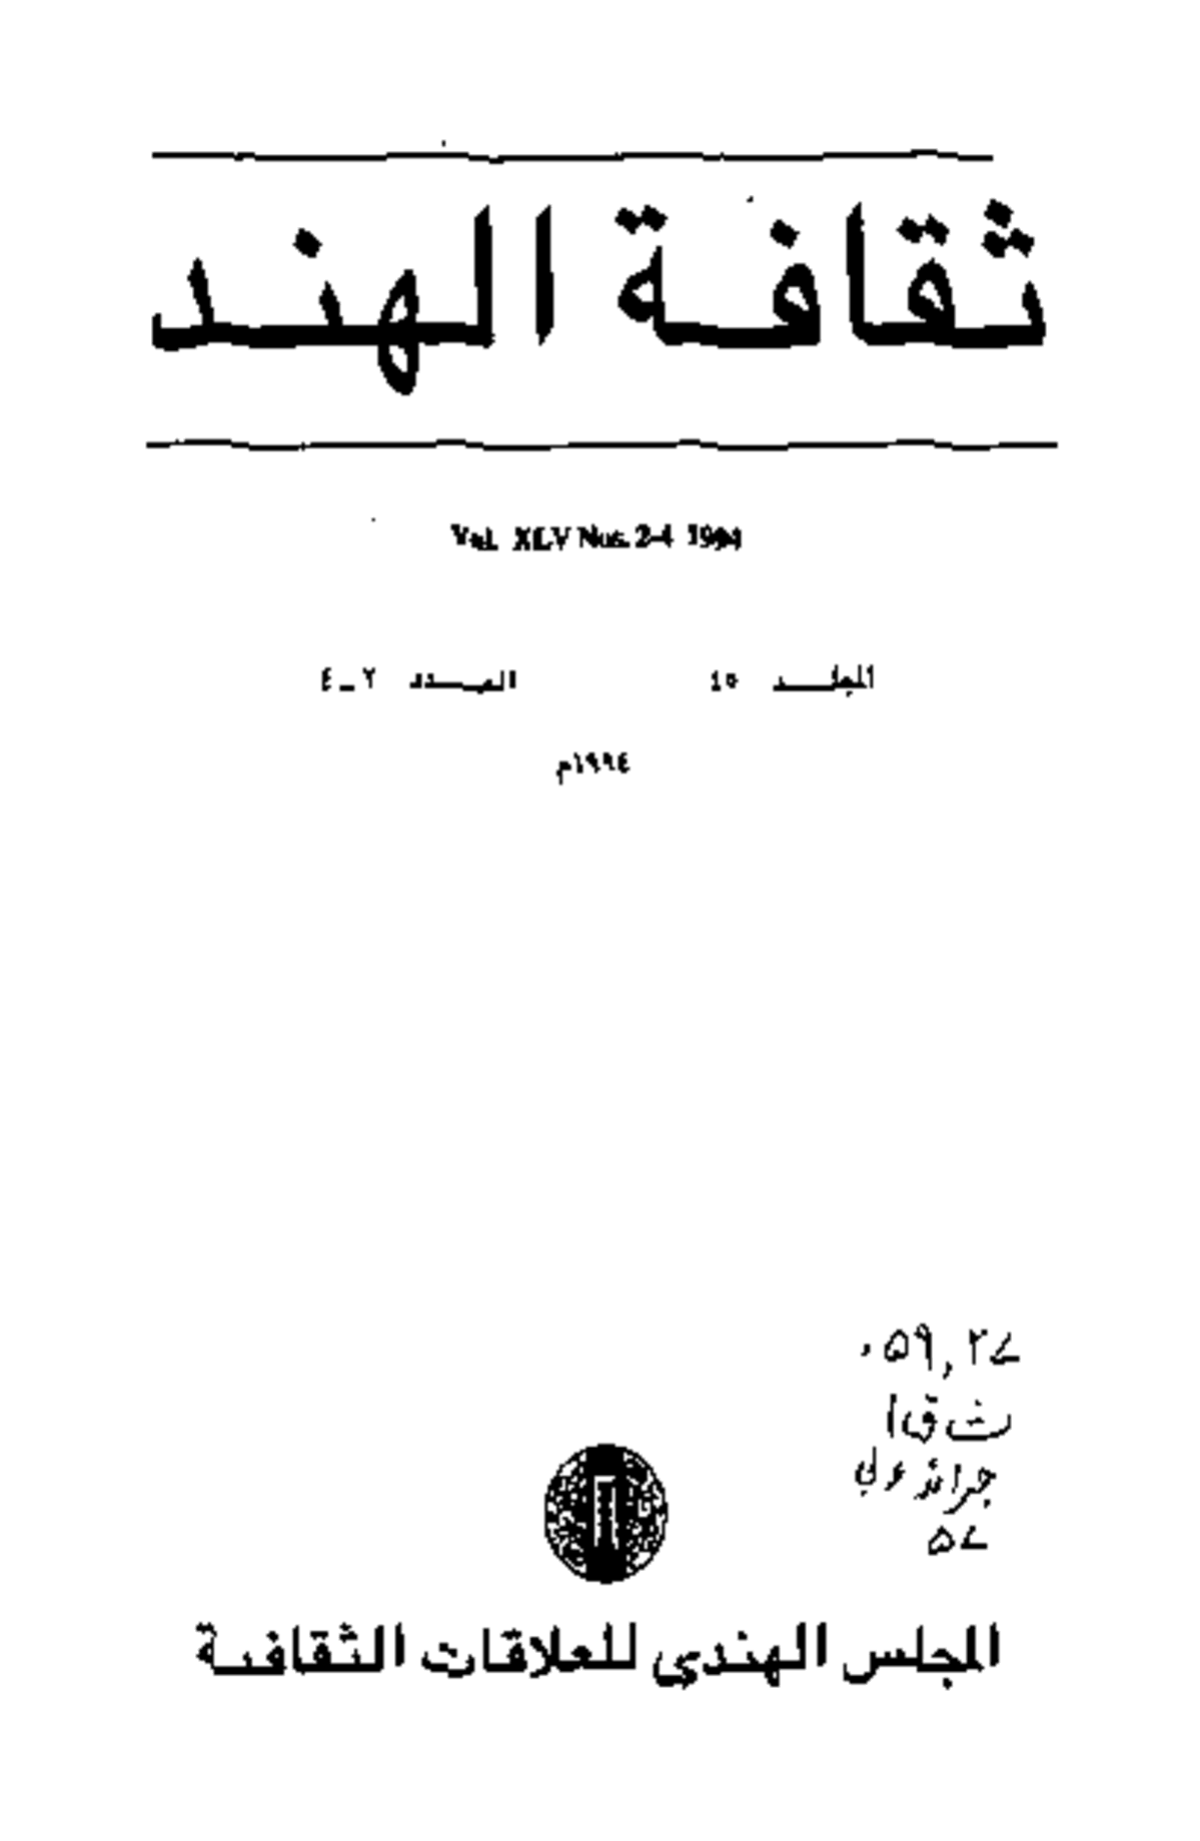 ثقافة الهند
Vol. XLV Nos. 2-4 1994
المجلد ٤٥ العدد ٢-٤
١٩٩٤م
۰۵۹,۲۷
ث ق ا
جرائد عربي
۵۷
المجلس الهندي للعلاقات الثقافية